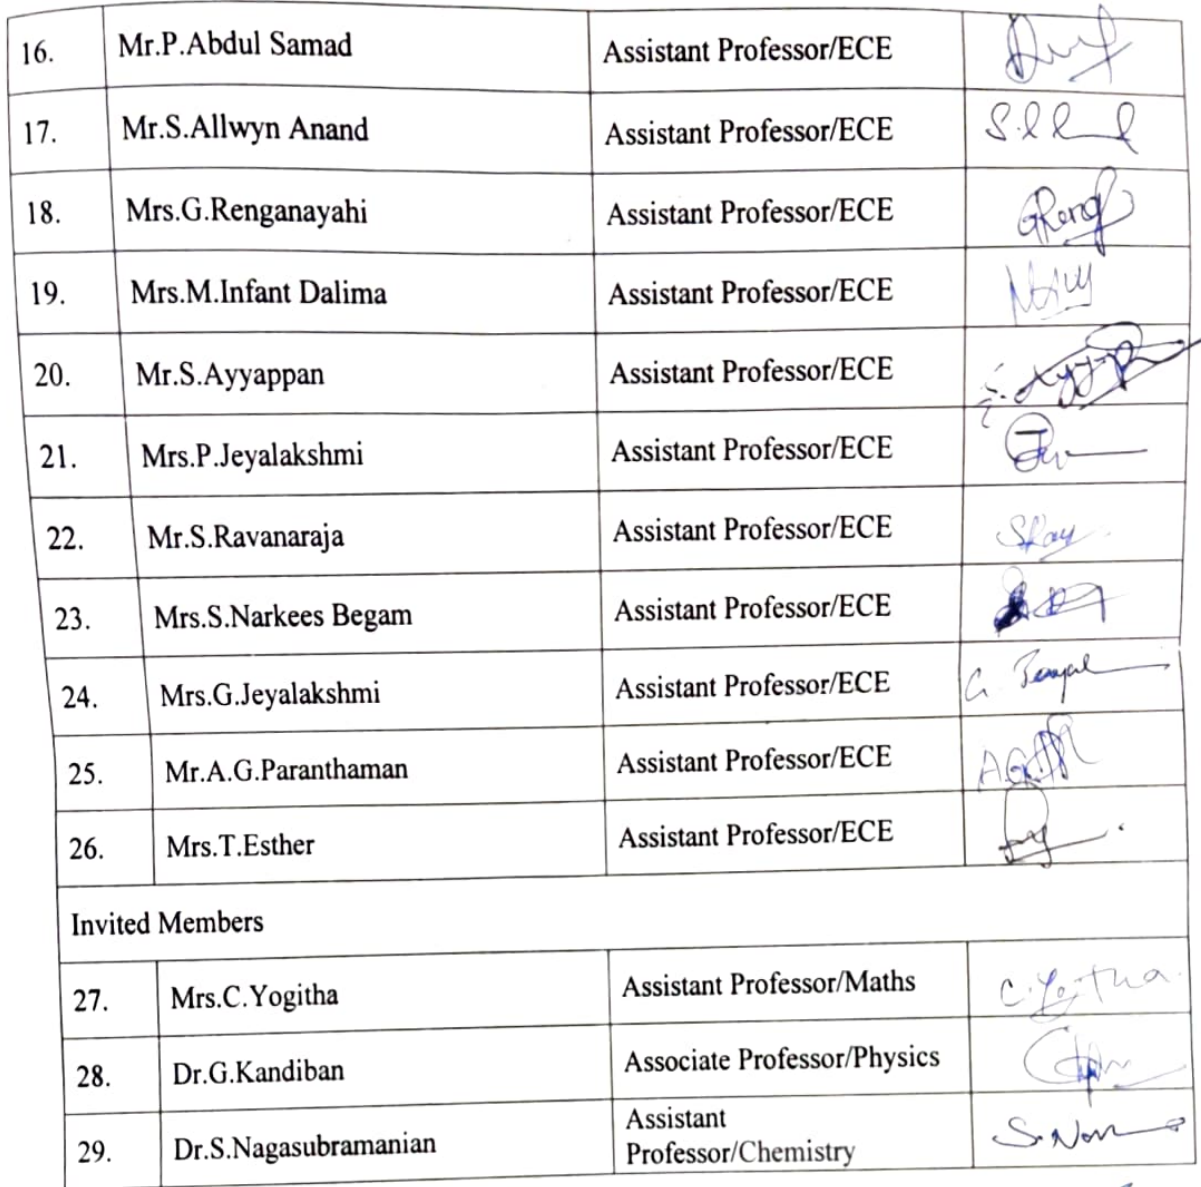 16. Mr.P.Abdul Samad Assistant Professor/ECE
17. Mr.S.Allwyn Anand Assistant Professor/ECE
18. Mrs.G.Renganayahi Assistant Professor/ECE
19. Mrs.M.Infant Dalima Assistant Professor/ECE
20. Mr.S.Ayyappan Assistant Professor/ECE
21. Mrs.P.Jeyalakshmi Assistant Professor/ECE
22. Mr.S.Ravanaraja Assistant Professor/ECE
23. Mrs.S.Narkees Begam Assistant Professor/ECE
24. Mrs.G.Jeyalakshmi Assistant Professor/ECE
25. Mr.A.G.Paranthaman Assistant Professor/ECE
26. Mrs.T.Esther Assistant Professor/ECE
Invited Members
27. Mrs.C.Yogitha Assistant Professor/Maths C.Yogitha
28. Dr.G.Kandiban Associate Professor/Physics
29. Dr.S.Nagasubramanian Assistant
Professor/Chemistry